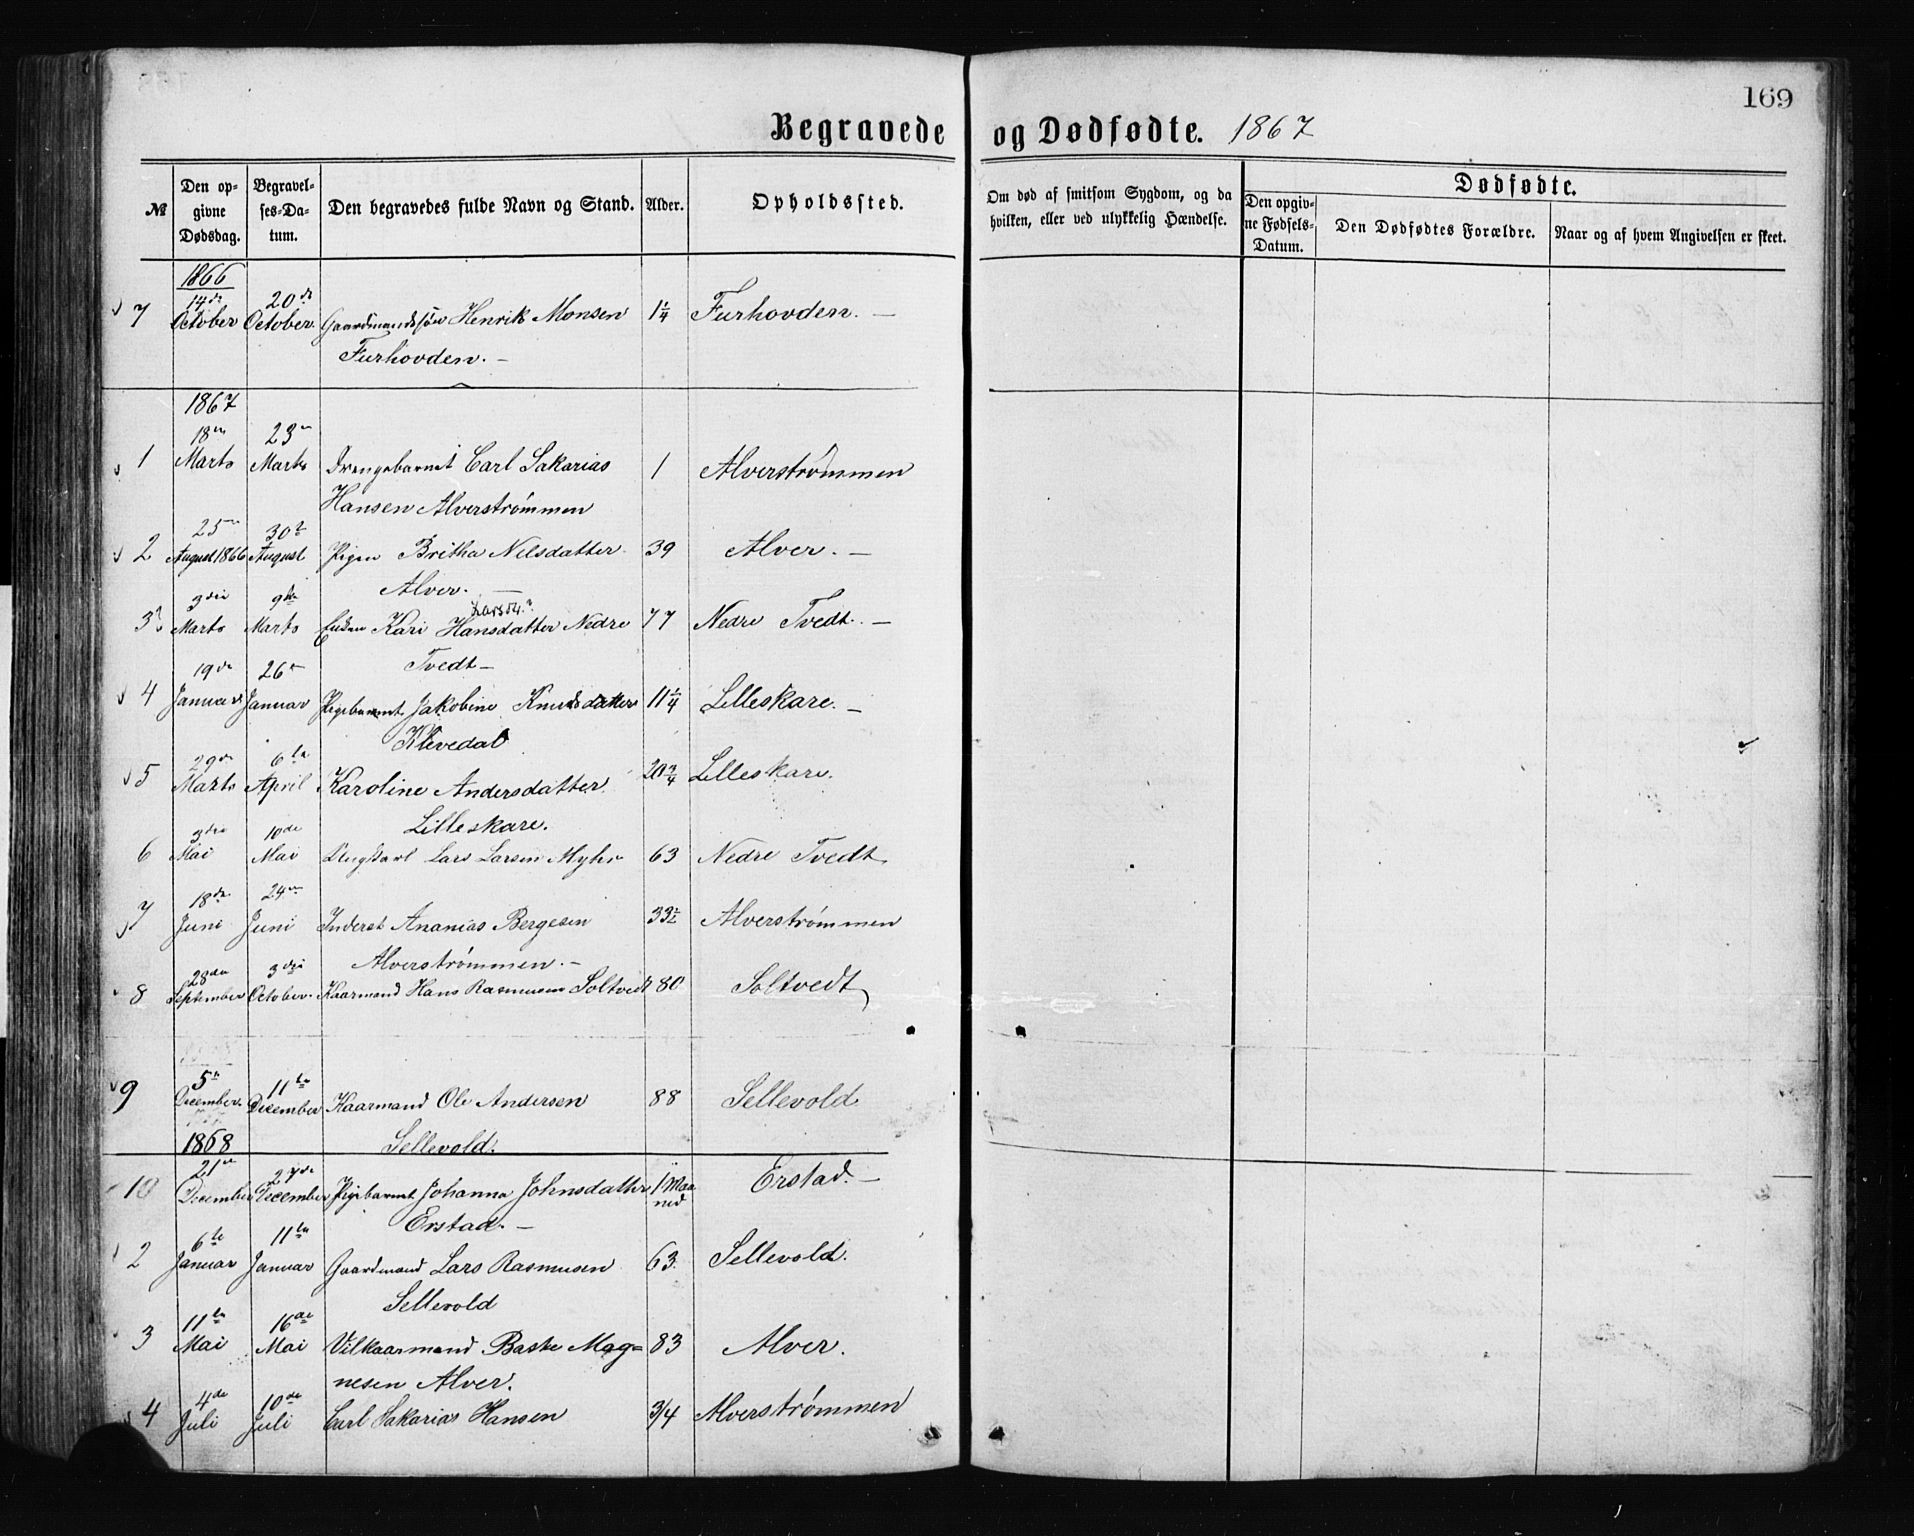 169
Begravede og Dødfødte. 1867
№
Den opgivne Dødsdag.
Begravelses-Datum.
Den begravedes fulde Navn og Stand.
Alder.
Opholdssted.
Om død af smitsom Sygdom, og da hvilken, eller ved ulykkelig Hændelse.
Dødfødte.
Den opgivne Fødsels-Datum.
Den Dødfødtes Forældre.
Naar og af hvem Angivelsen er skeet.
1866
14de 20de
7 October October. Gaardmandssøn Henrik Monsen 1¼ Furhovden. —
Furhovden. —
1867
18 23
1 Marts Marts Drengebarnet Carl Sakarias 1 Alverstrømmen
Hansen Alverstrømmen
25 30
2 August 1866 August Pigen Britha Nilsdatter 39 Alver. —
Alver. —
3die 9de Larsd.?
3 Marts Marts Enken Kari Hansdatter Nedre 77 Nedre Tvedt. —
Tvedt —
19de 26
4 Januar Januar Pigebarnet Jakobine Knudsdatter 11¼ Lilleskare. —
Klevedal
29de 6te
5 Marts April Karoline Andersdatter 20¾ Lilleskare.
Lilleskare.
3die 10de
6 Mai Mai Ungkarl Lars Larsen Myhr 63 Nedre Tvedt
18de 24
7 Juni Juni Inderst Ananias Bergesen 33½ Alverstrømmen
Alverstrømmen. —
28de 3die
8 September October. Kaarmand Hans Rasmusen Soltvedt 80 Soltvedt
5te 11te
9 December. December Kaarmand Ole Andersen 88 Sellevold
1868 Sellevold.
21 27de
10 December December Pigebarnet Johanna Johnsdatter 1 Maaned Erstad. —
Erstad. —
6te 11te
2 Januar Januar Gaardmand Lars Rasmusen 63. Sellevold.
Sellevold
11te 16de
3 Mai Mai Vilkaarmand Baste Mag= 83 Alver.
nesen Alver.
4de 10de
4 Juli Juli Carl Sakarias Hansen 3/4 Alverstrømmen